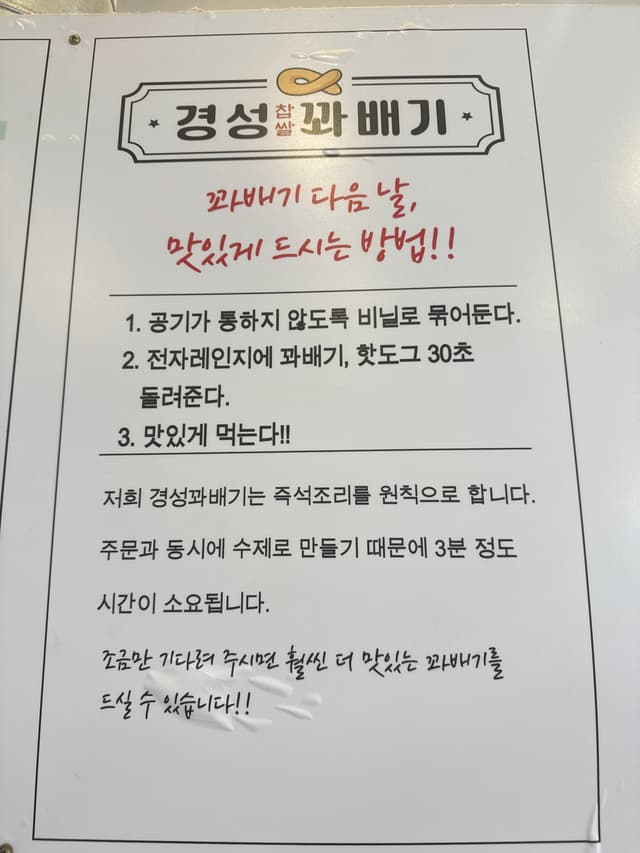 경성찹쌀꽈배기
꽈배기 다음 날,
맛있게 드시는 방법!!
1. 공기가 통하지 않도록 비닐로 묶어둔다.
2. 전자레인지에 꽈배기, 핫도그 30초
돌려준다.
3. 맛있게 먹는다!!
저희 경성꽈배기는 즉석조리를 원칙으로 합니다.
주문과 동시에 수제로 만들기 때문에 3분 정도
시간이 소요됩니다.
조금만 기다려 주시면 훨씬 더 맛있는 꽈배기를
드실 수 있습니다!!